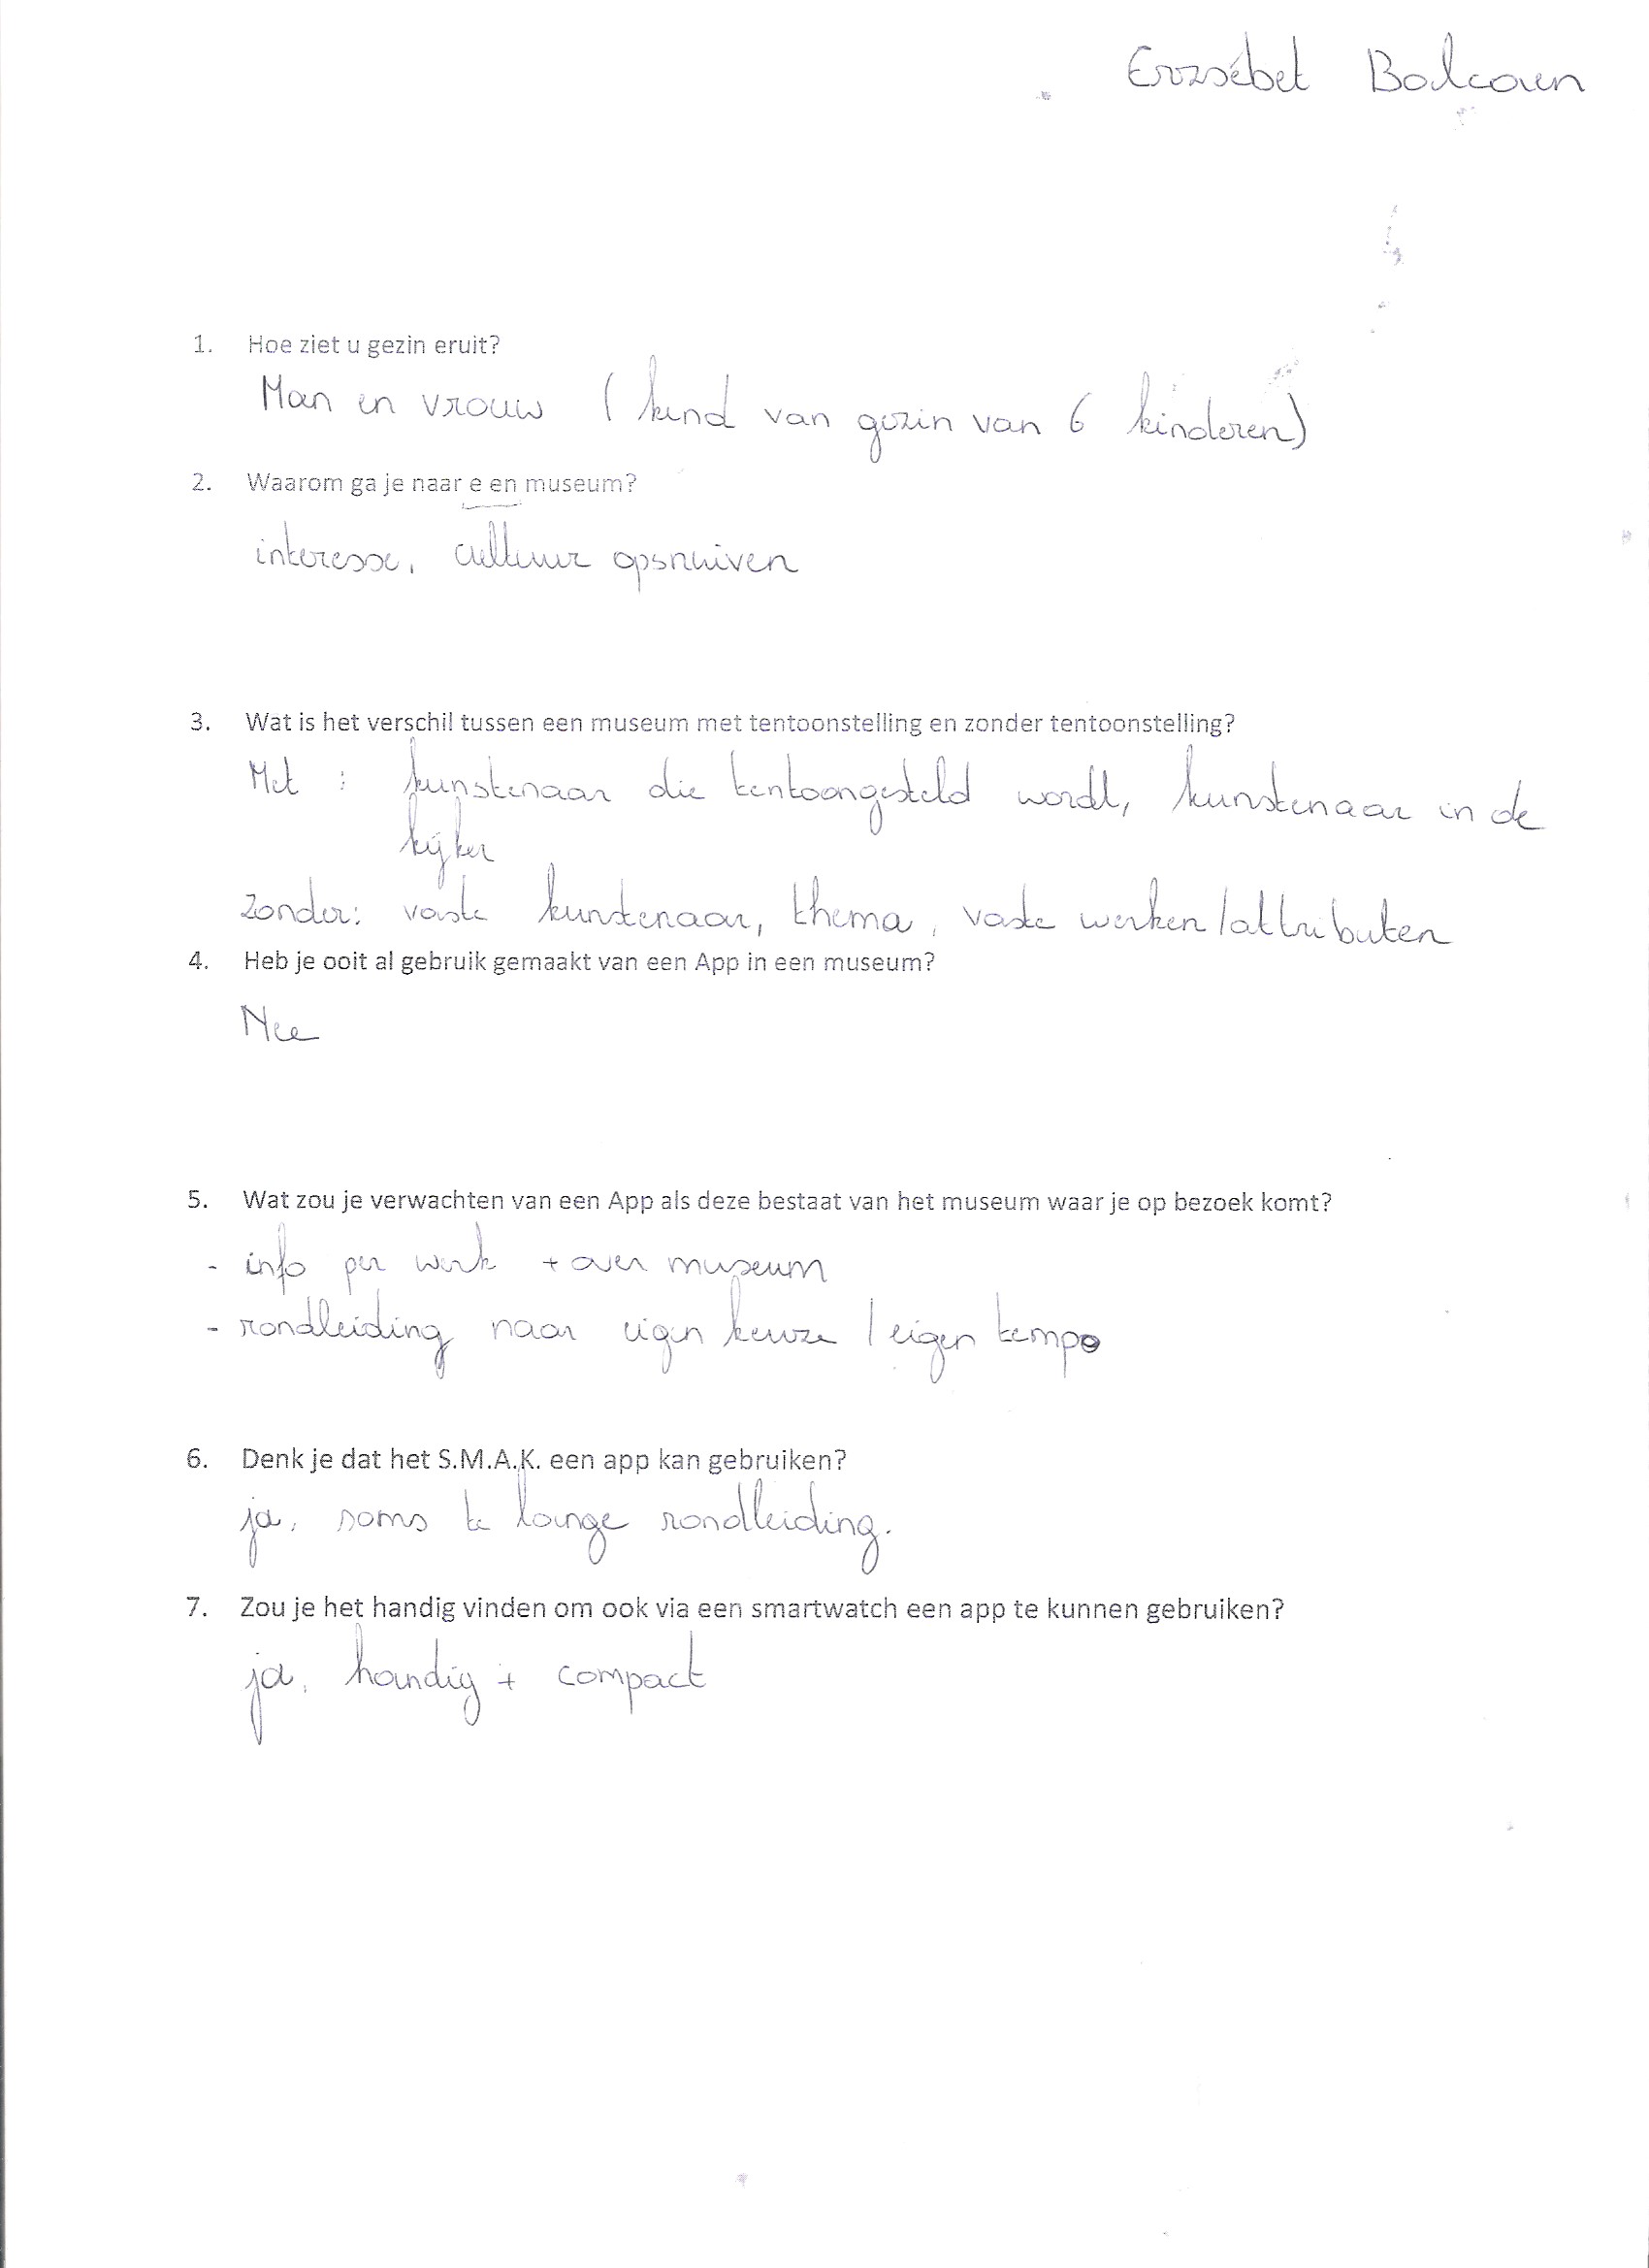 Erzsébet Balcaen
1. Hoe ziet u gezin eruit?
Man en vrouw (kind van gezin van 6 kinderen)
2. Waarom ga je naar e en museum?
interesse, cultuur opsnuiven
3. Wat is het verschil tussen een museum met tentoonstelling en zonder tentoonstelling?
Met : kunstenaar die tentoongesteld wordt, kunstenaar in de
kijker
Zonder: vaste kunstenaar, thema, vaste werken/attributen
4. Heb je ooit al gebruik gemaakt van een App in een museum?
Nee
5. Wat zou je verwachten van een App als deze bestaat van het museum waar je op bezoek komt?
- info per werk + over museum
- rondleiding naar eigen keuze / eigen tempo
6. Denk je dat het S.M.A.K. een app kan gebruiken?
ja, soms te lange rondleiding.
7. Zou je het handig vinden om ook via een smartwatch een app te kunnen gebruiken?
ja, handig + compact